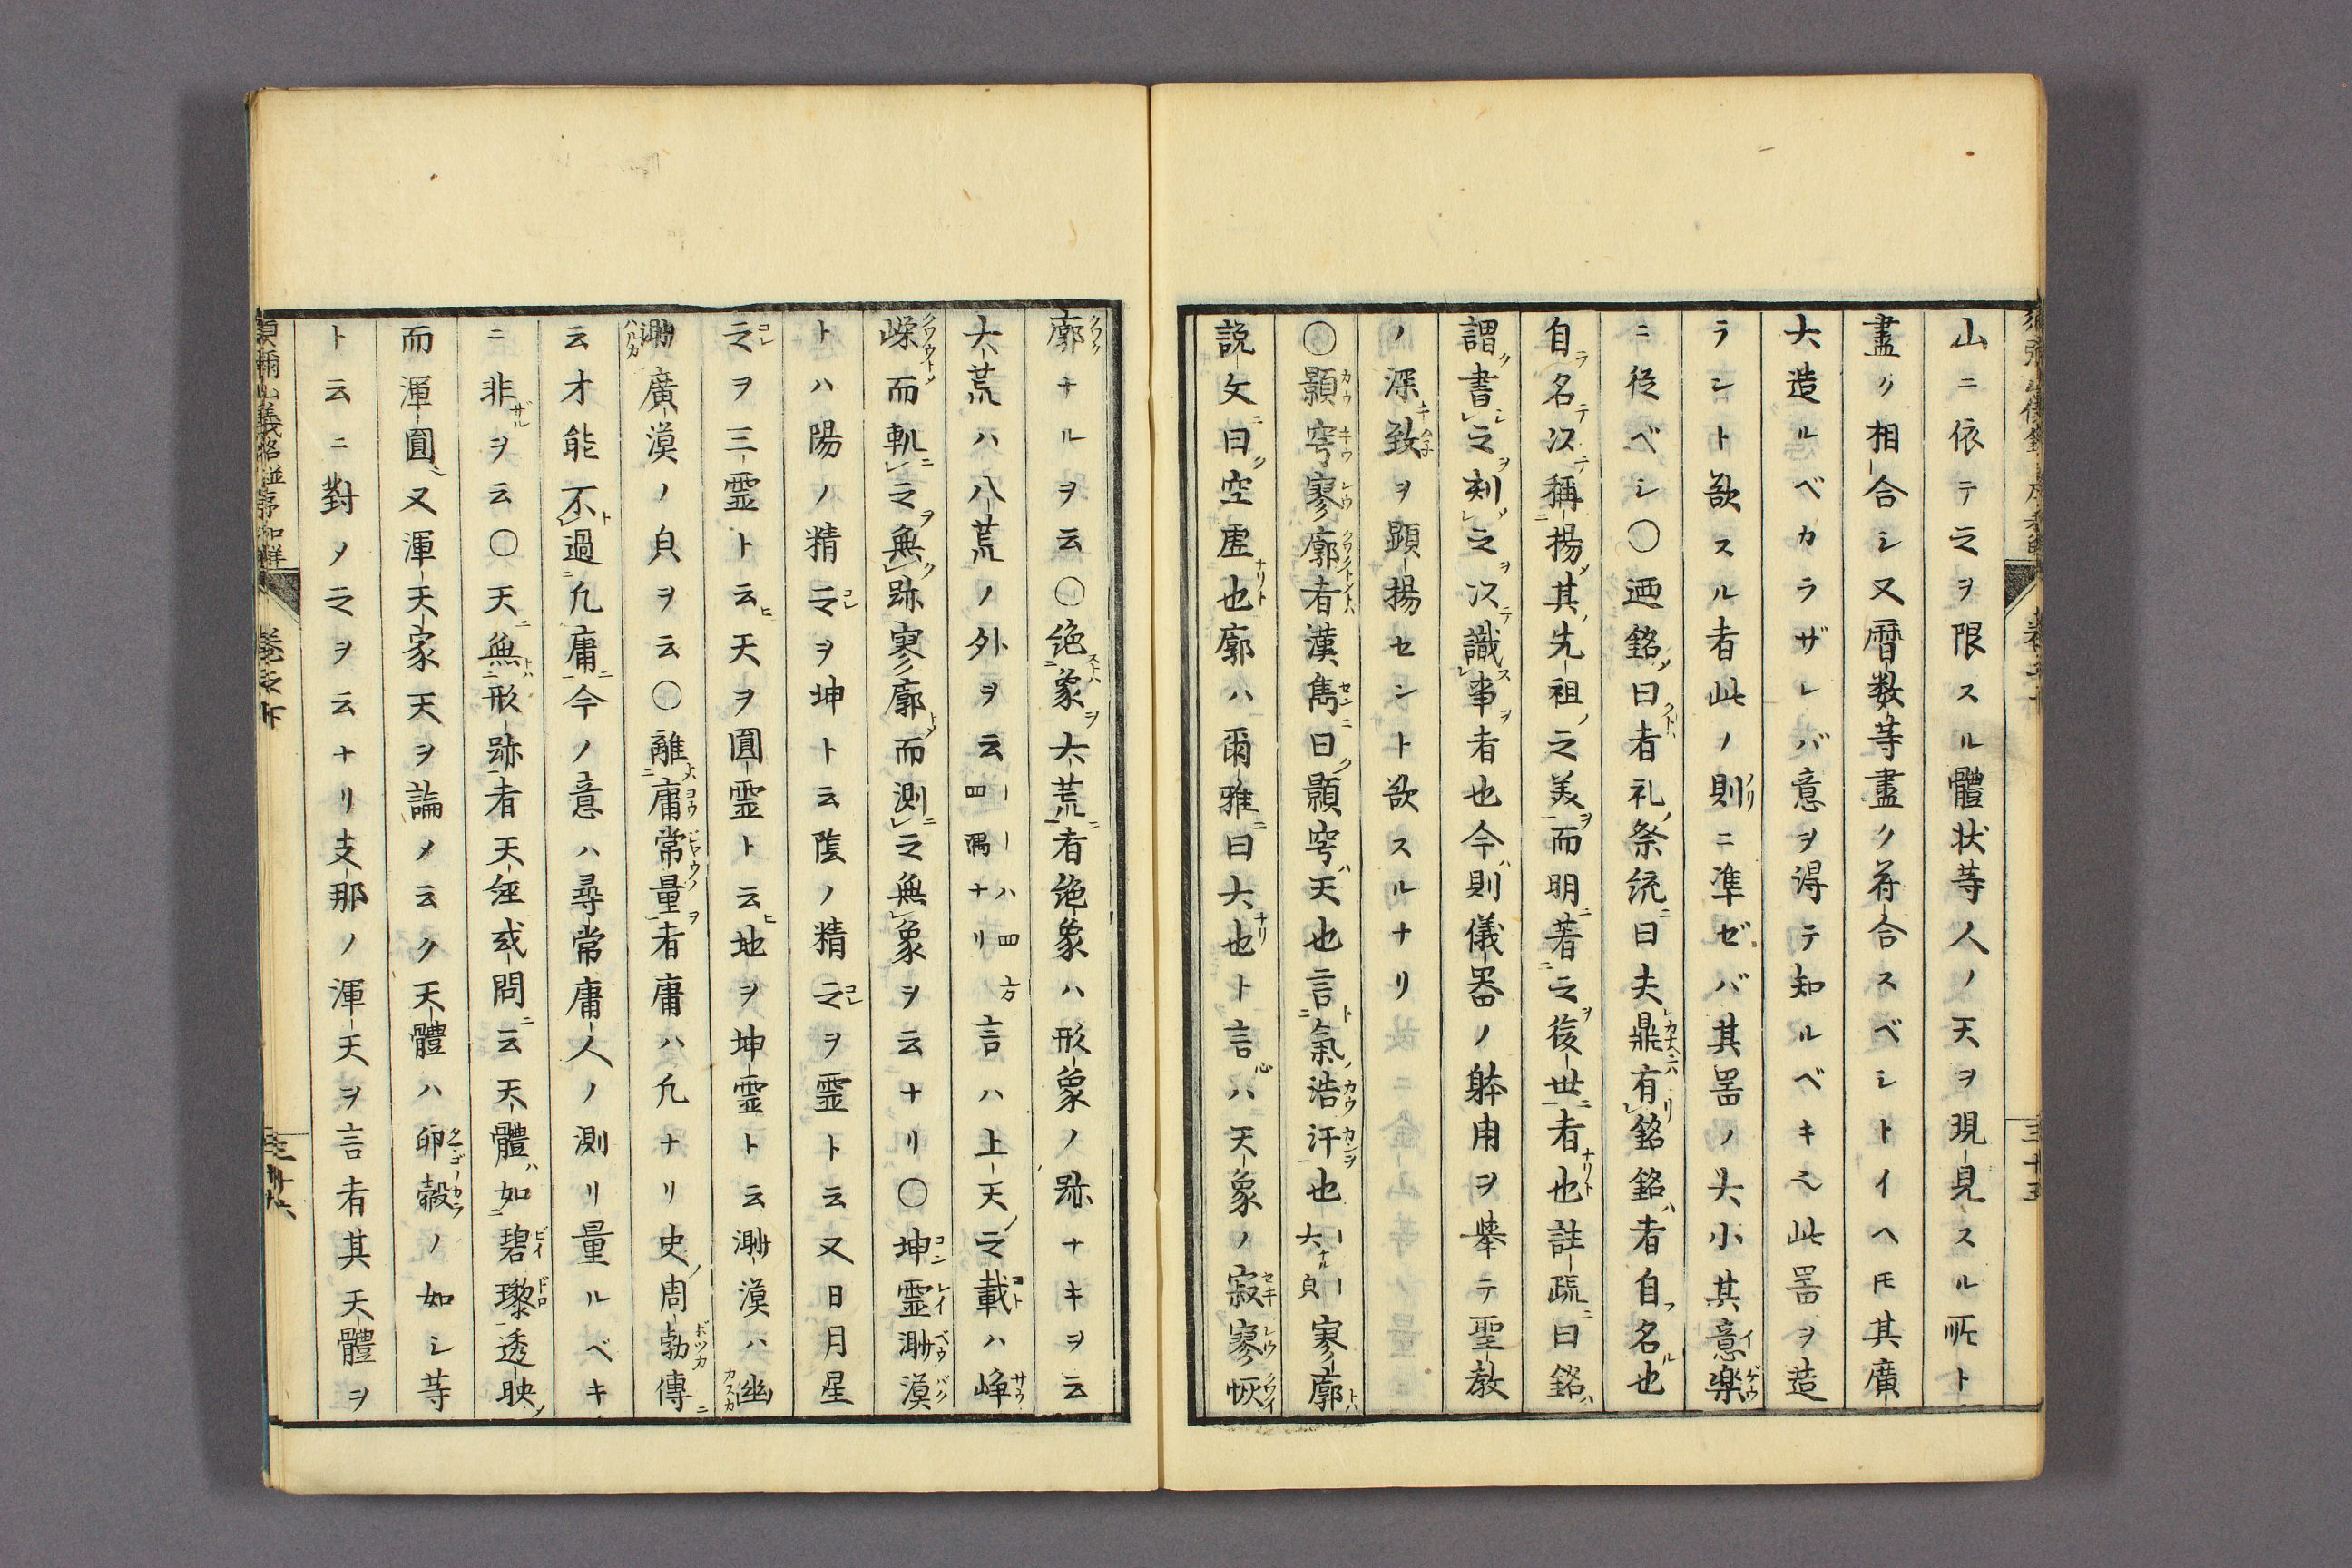 山ニ依テ之ヲ限スル體状等人ノ天ヲ現見スル所ト
盡ク相合シ又暦数等盡ク符合スベシトイヘ𪜈其廣
大造ルベカラザレバ意ヲ得テ知ルベキ也此噐ヲ造
ラント欲スル者此ノ則ニ準ゼバ其噐ノ大小其意楽
ニ従ベシ〇迺銘曰者礼祭統曰夫鼎有銘銘者自名也
自名以稱揚其先祖之美而明著之後世者也註疏曰銘
謂書之刻之以識事者也今則儀器ノ躰用ヲ挙テ聖教
ノ深致ヲ顕揚セント欲スルナリ
〇顥穹寥廓者漢雋曰顥穹天也言氣浩汗也大貞寥廓
説文曰空虚也廓ハ爾雅曰大也ト言ハ天象ノ寂寥恢
廓ナルヲ云〇絶象大荒者絶象ハ形象ノ跡ナキヲ云
大荒ハ八荒ノ外ヲ云四方四隅ナリ言ハ上天之載ハ崢
嶸而軌之無跡寥廓而測之無象ヲ云ナリ〇坤霊渺漠
トハ陽ノ精之ヲ坤ト云陰ノ精之ヲ霊ト云又日月星
之ヲ三霊ト云天ヲ圓霊ト云地ヲ坤霊ト云渺漠ハ幽
渺廣漠ノ貞ヲ云〇離庸常量者庸ハ凢ナリ史周勃傳
云才能不過凢庸今ノ意ハ尋常庸人ノ測リ量ルベキ
ニ非ヲ云〇天無形跡者天経或問云天體如碧瓈透映
而渾圓又渾天家天ヲ論メ云ク天體ハ卵殻ノ如シ等
ト云ニ對メ之ヲ云ナリ支那ノ渾天ヲ言者其天體ヲ